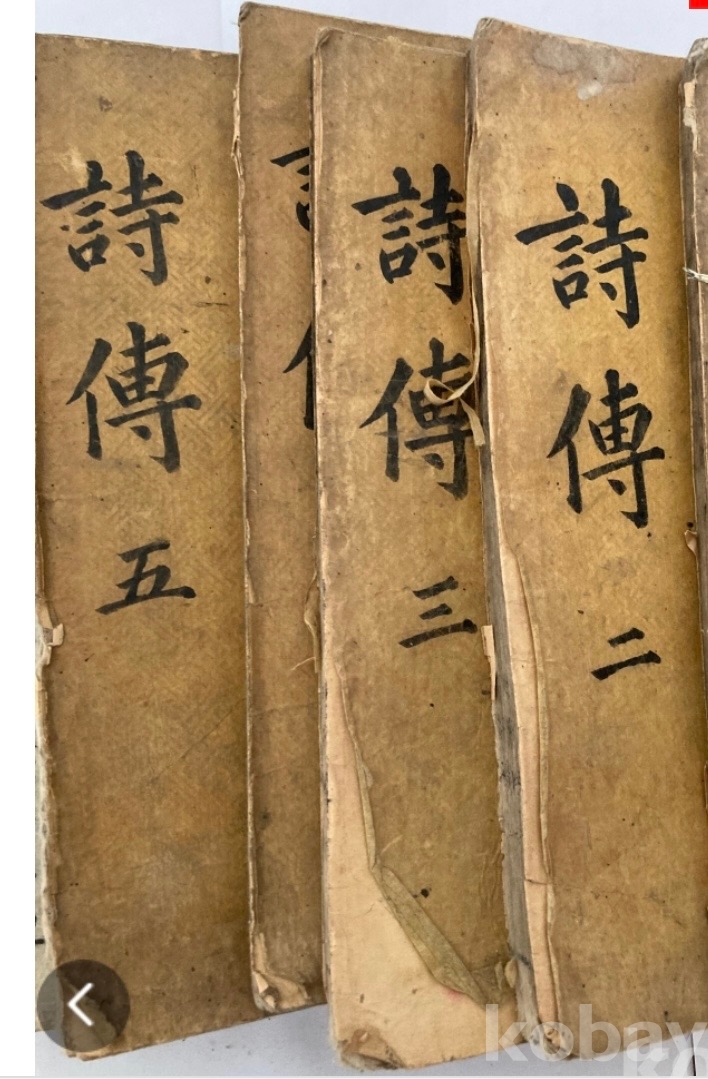 詩傳 二
詩傳 三
詩傳 五
kobay